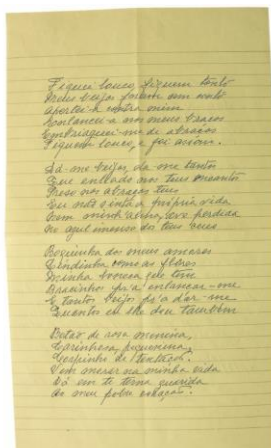 Fiquei louco, fiquei tonto
Meus beijos foram sem conto
Apertei-a contra mim
Enlancei-a em meus braços
Embriaguei-me de abraços
Fiquei louco, e foi assim.
Dá-me beijos, dá-me tantos
Que enleado nos teus encantos
Preso nos abraços teus
Eu não sinta a própria vida
Nem minh'alma, ave perdida
No azul imenso dos teus céus
Boquinha dos meus amores
Lindinha como as flores
Minha boneca que tem
Bracinhos p'a' enlançar-me
E tantos beijos p'a' dar-me
Quantos eu lhe dou também
Botão de rosa menina,
Carinhosa, pequenina,
Corpinho de tentação.
Vem morar na minha vida
Dá em ti terna guarida
Ao meu pobre coração.